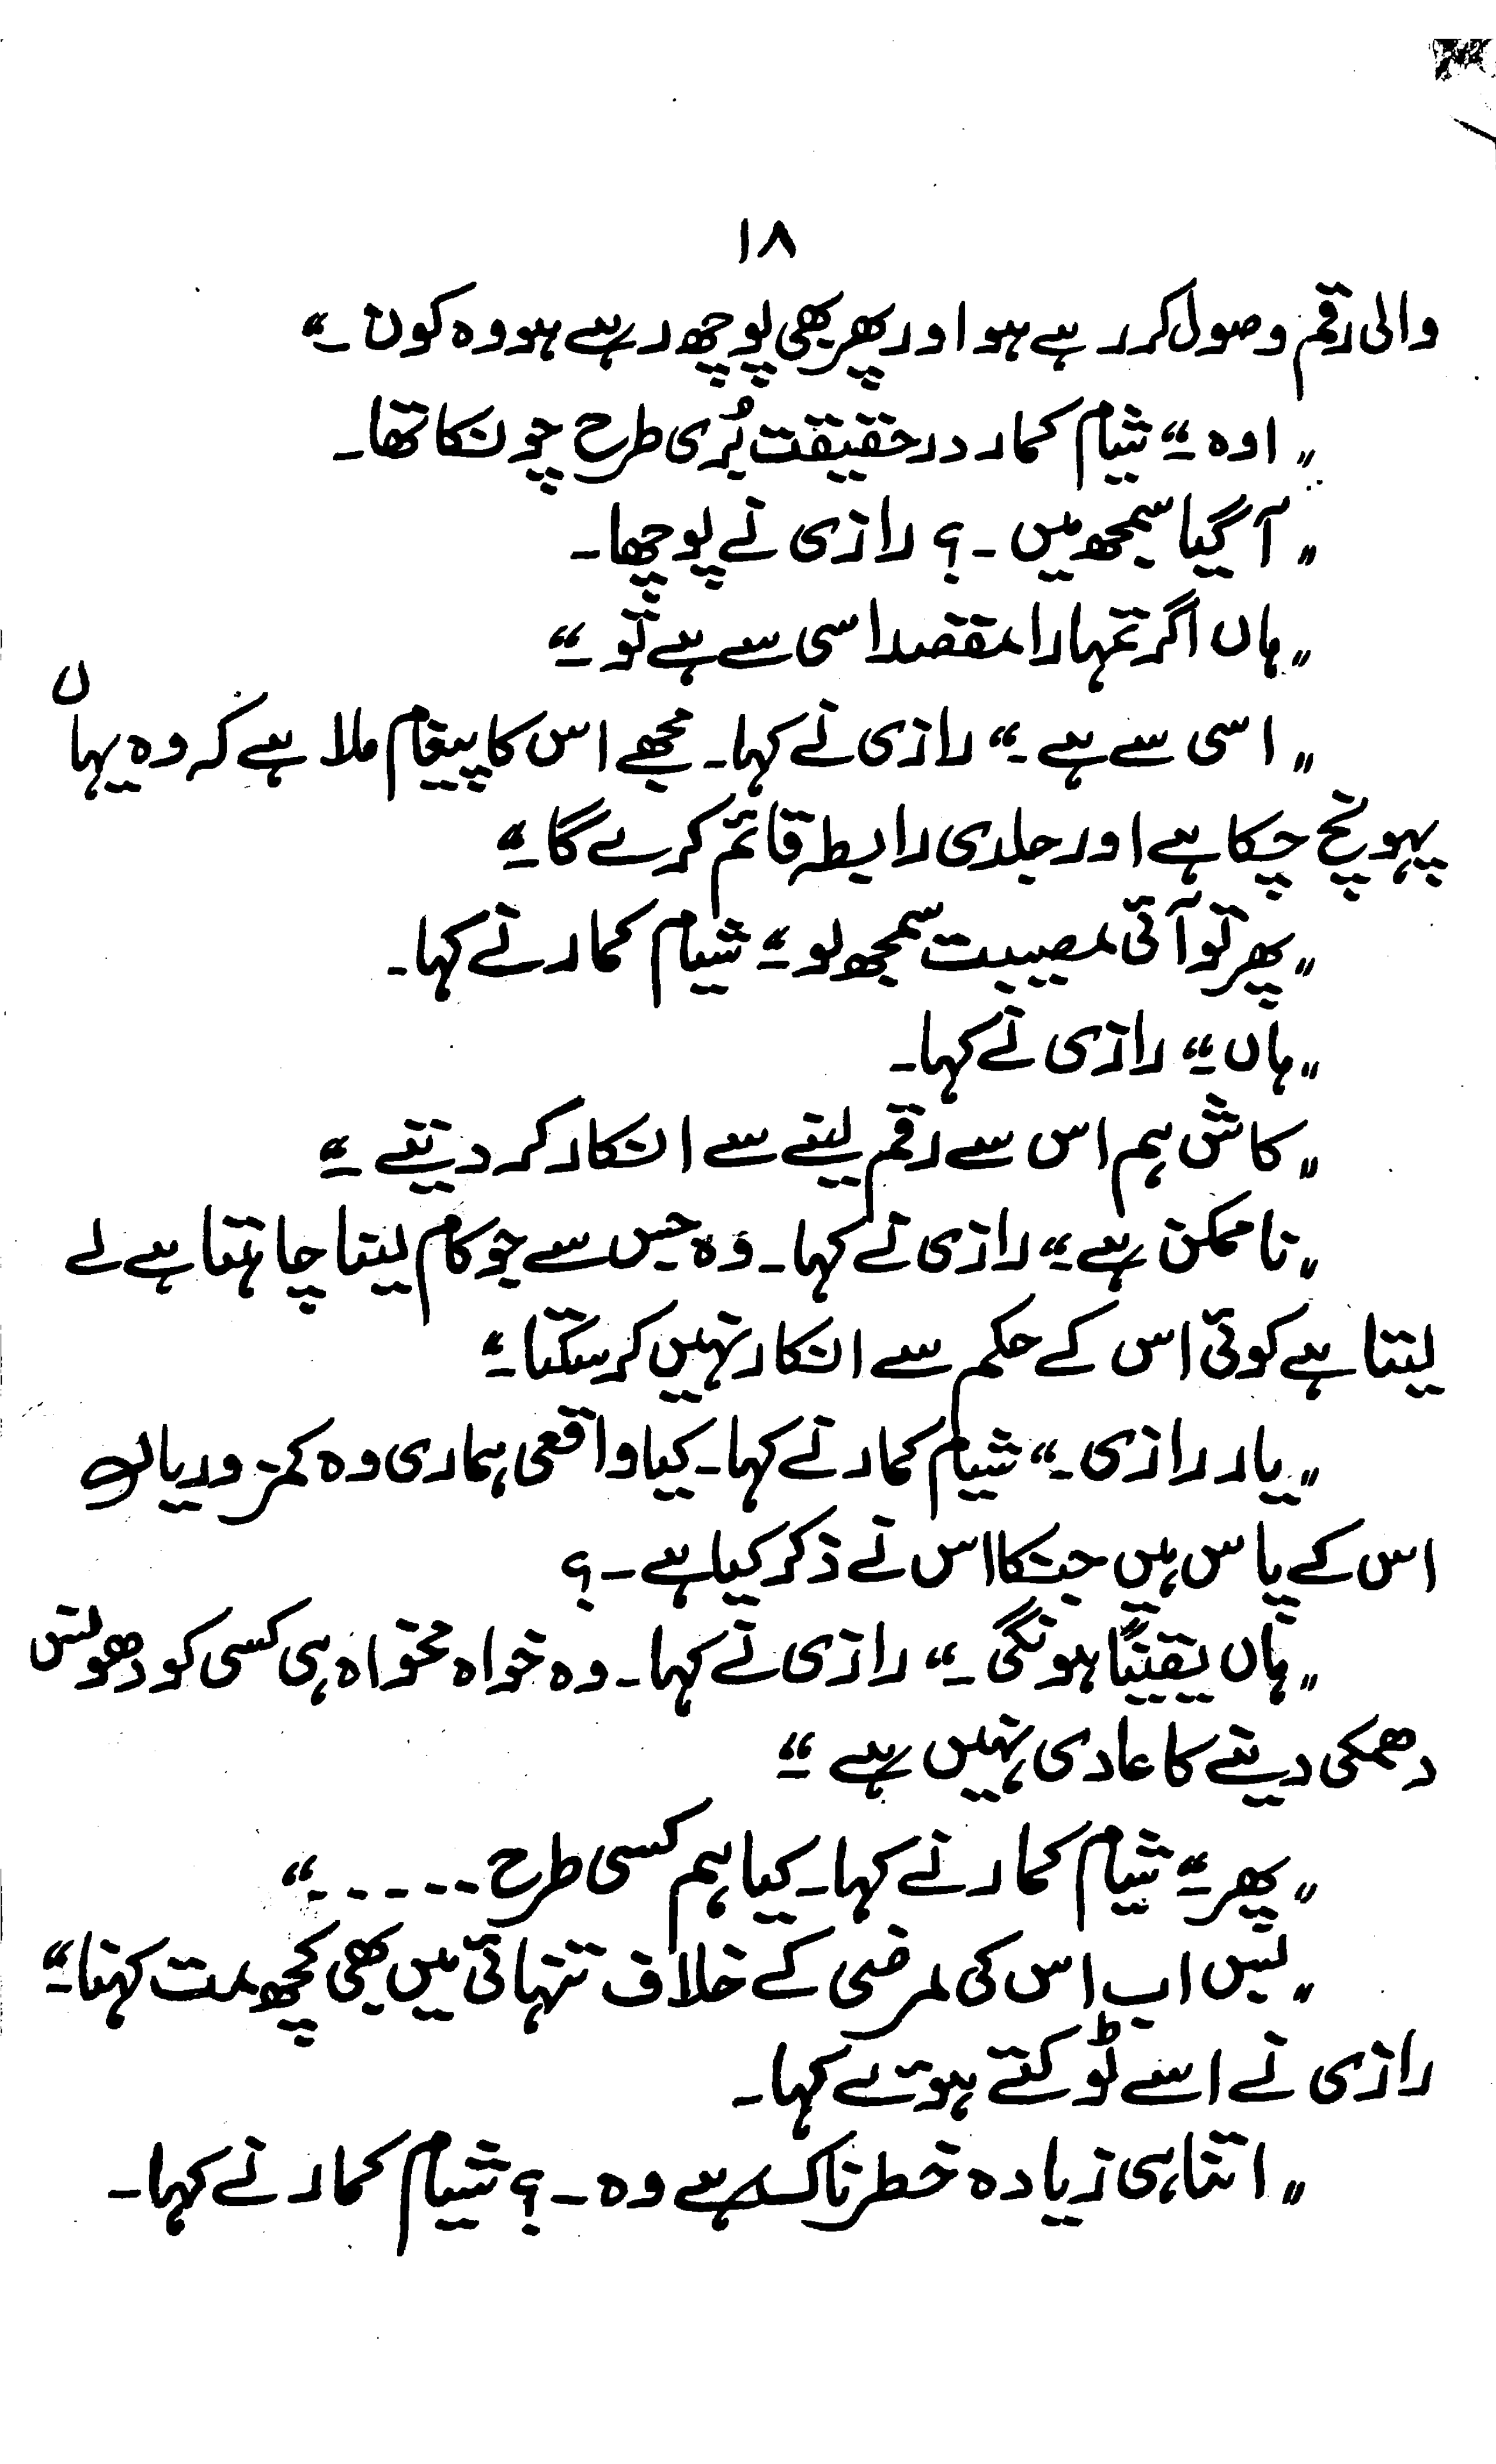 ۱۸
والی رقم وصول کر رہے ہو اور پھر بھی پوچھ رہے ہو وہ کون ۔“
”اوہ ۔“ شیام کمار درحقیقت بُری طرح چونکا تھا۔
”آگیا سمجھ میں ۔؟ رازی نے پوچھا۔
”ہاں اگر تمہارا مقصد اسی سے ہے تو ۔“
”اسی سے ہے ۔“ رازی نے کہا۔ مجھے اس کا پیغام ملا ہے کہ وہ یہاں
پہونچ چکا ہے اور جلدی رابطہ قائم کرے گا ۔“
”پھر تو آئی مصیبت سمجھ لو ۔“ شیام کمار نے کہا۔
”ہاں ۔“ رازی نے کہا۔
”کاش ہم اس سے رقم لینے سے انکار کر دیتے ۔“
”ناممکن ہے ۔“ رازی نے کہا۔ وہ جس سے جو کام لینا چاہتا ہے لے
لیتا ہے کوئی اس کے حکم سے انکار نہیں کر سکتا ۔“
”یار رازی ۔“ شیام کمار نے کہا۔ کیا واقعی ہماری وہ کمزوریاں
اس کے پاس ہیں جنکا اس نے ذکر کیا ہے ۔؟
”ہاں یقیناً ہونگی ۔“ رازی نے کہا۔ وہ خواہ مخواہ ہی کسی کو دھونس
دھمکی دینے کا عادی نہیں ہے ۔“
”پھر ۔“ شیام کمار نے کہا۔ کیا ہم کسی طرح ۔۔۔۔۔۔“
”بس اب اس کی مرضی کے خلاف تنہائی میں بھی کچھ مت کہنا ۔“
رازی نے اسے ٹوکتے ہوئے کہا۔
”اتنا ہی زیادہ خطرناک ہے وہ ۔؟ شیام کمار نے کہا۔